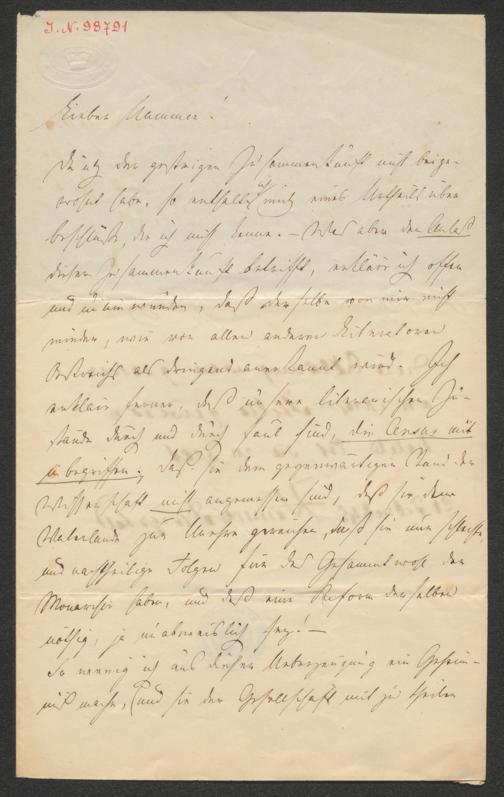 J. N. 98791
Lieber Hammer!
Da ich der gestrigen Zusammenkunft nicht beige-
wohnt habe, so enthalte ich mich eines Urtheils über
Beschlüße, die ich nicht kenne. – Was aber den Anlaß
dieser Zusammenkunft betrifft, erkläre ich offen
und unumwunden, daß derselbe von mir nicht
minder, wie von allen anderen Literatoren
Östreichs als dringend anerkannt wird. Ich
erkläre ferner, daß unsere literarischen Zu-
stände durch und durch faul sind, die Censur mit
inbegriffen; daß sie dem gegenwärtigen Stand der
Wissenschaft nicht angemessen sind, daß sie dem
Vaterlande zur Unehre gereichen, daß sie nur schlechte
und nachtheilige Folgen für das Gesammtwohl der
Monarchie haben, und daß eine Reform derselben
nöthig, ja unabweislich sey! –
So wenig ich aus dieser Ueberzeugung ein Geheim-
niß mache, und sie der Gesellschaft mit zu theilen